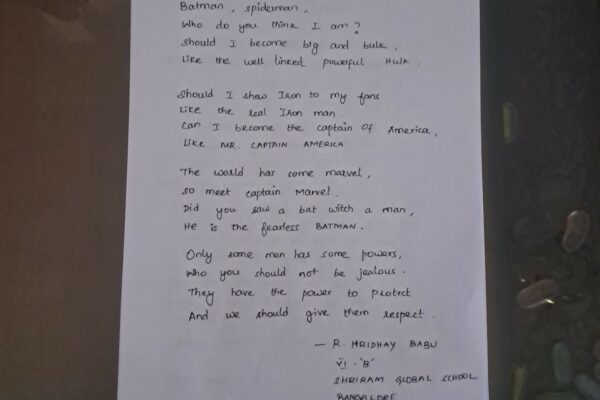 Batman, spiderman,
Who do you think I am?
Should I become big and bulk,
Like the well linked powerful Hulk.
Should I shaw Iron to my fans
Like the real Iron man.
Can I become the captain Of America,
Like MR. CAPTAIN AMERICA.
The world has come marvel,
So meet captain Marvel.
Did you saw a bat witch a man,
He is the fearless BATMAN.
Only some men has some powers,
Who you should not be jealous.
They have the power to protect
And we should give them respect.
— R. HRIDHAY BABU
VI - 'B'
SHRIRAM GLOBAL SCHOOL
BANGALORE